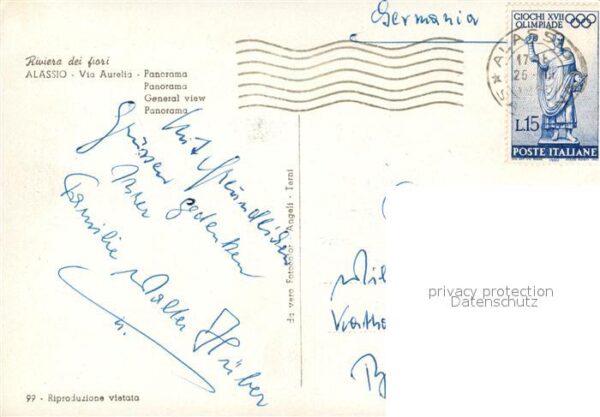 Germania
GIOCHI XVII
OLIMPIADE
ALASSI
17-
25
L.15
POSTE ITALIANE
Riviera dei fiori
ALASSIO - Via Aurelia - Panorama
Panorama
General view
Panorama
Mit freundlichen
Grüssen gedenken
Ihrer
Familie Walter Hüber
da vero Fotokolor Angeli - Terni
privacy protection
Datenschutz
99 - Riproduzione vietata